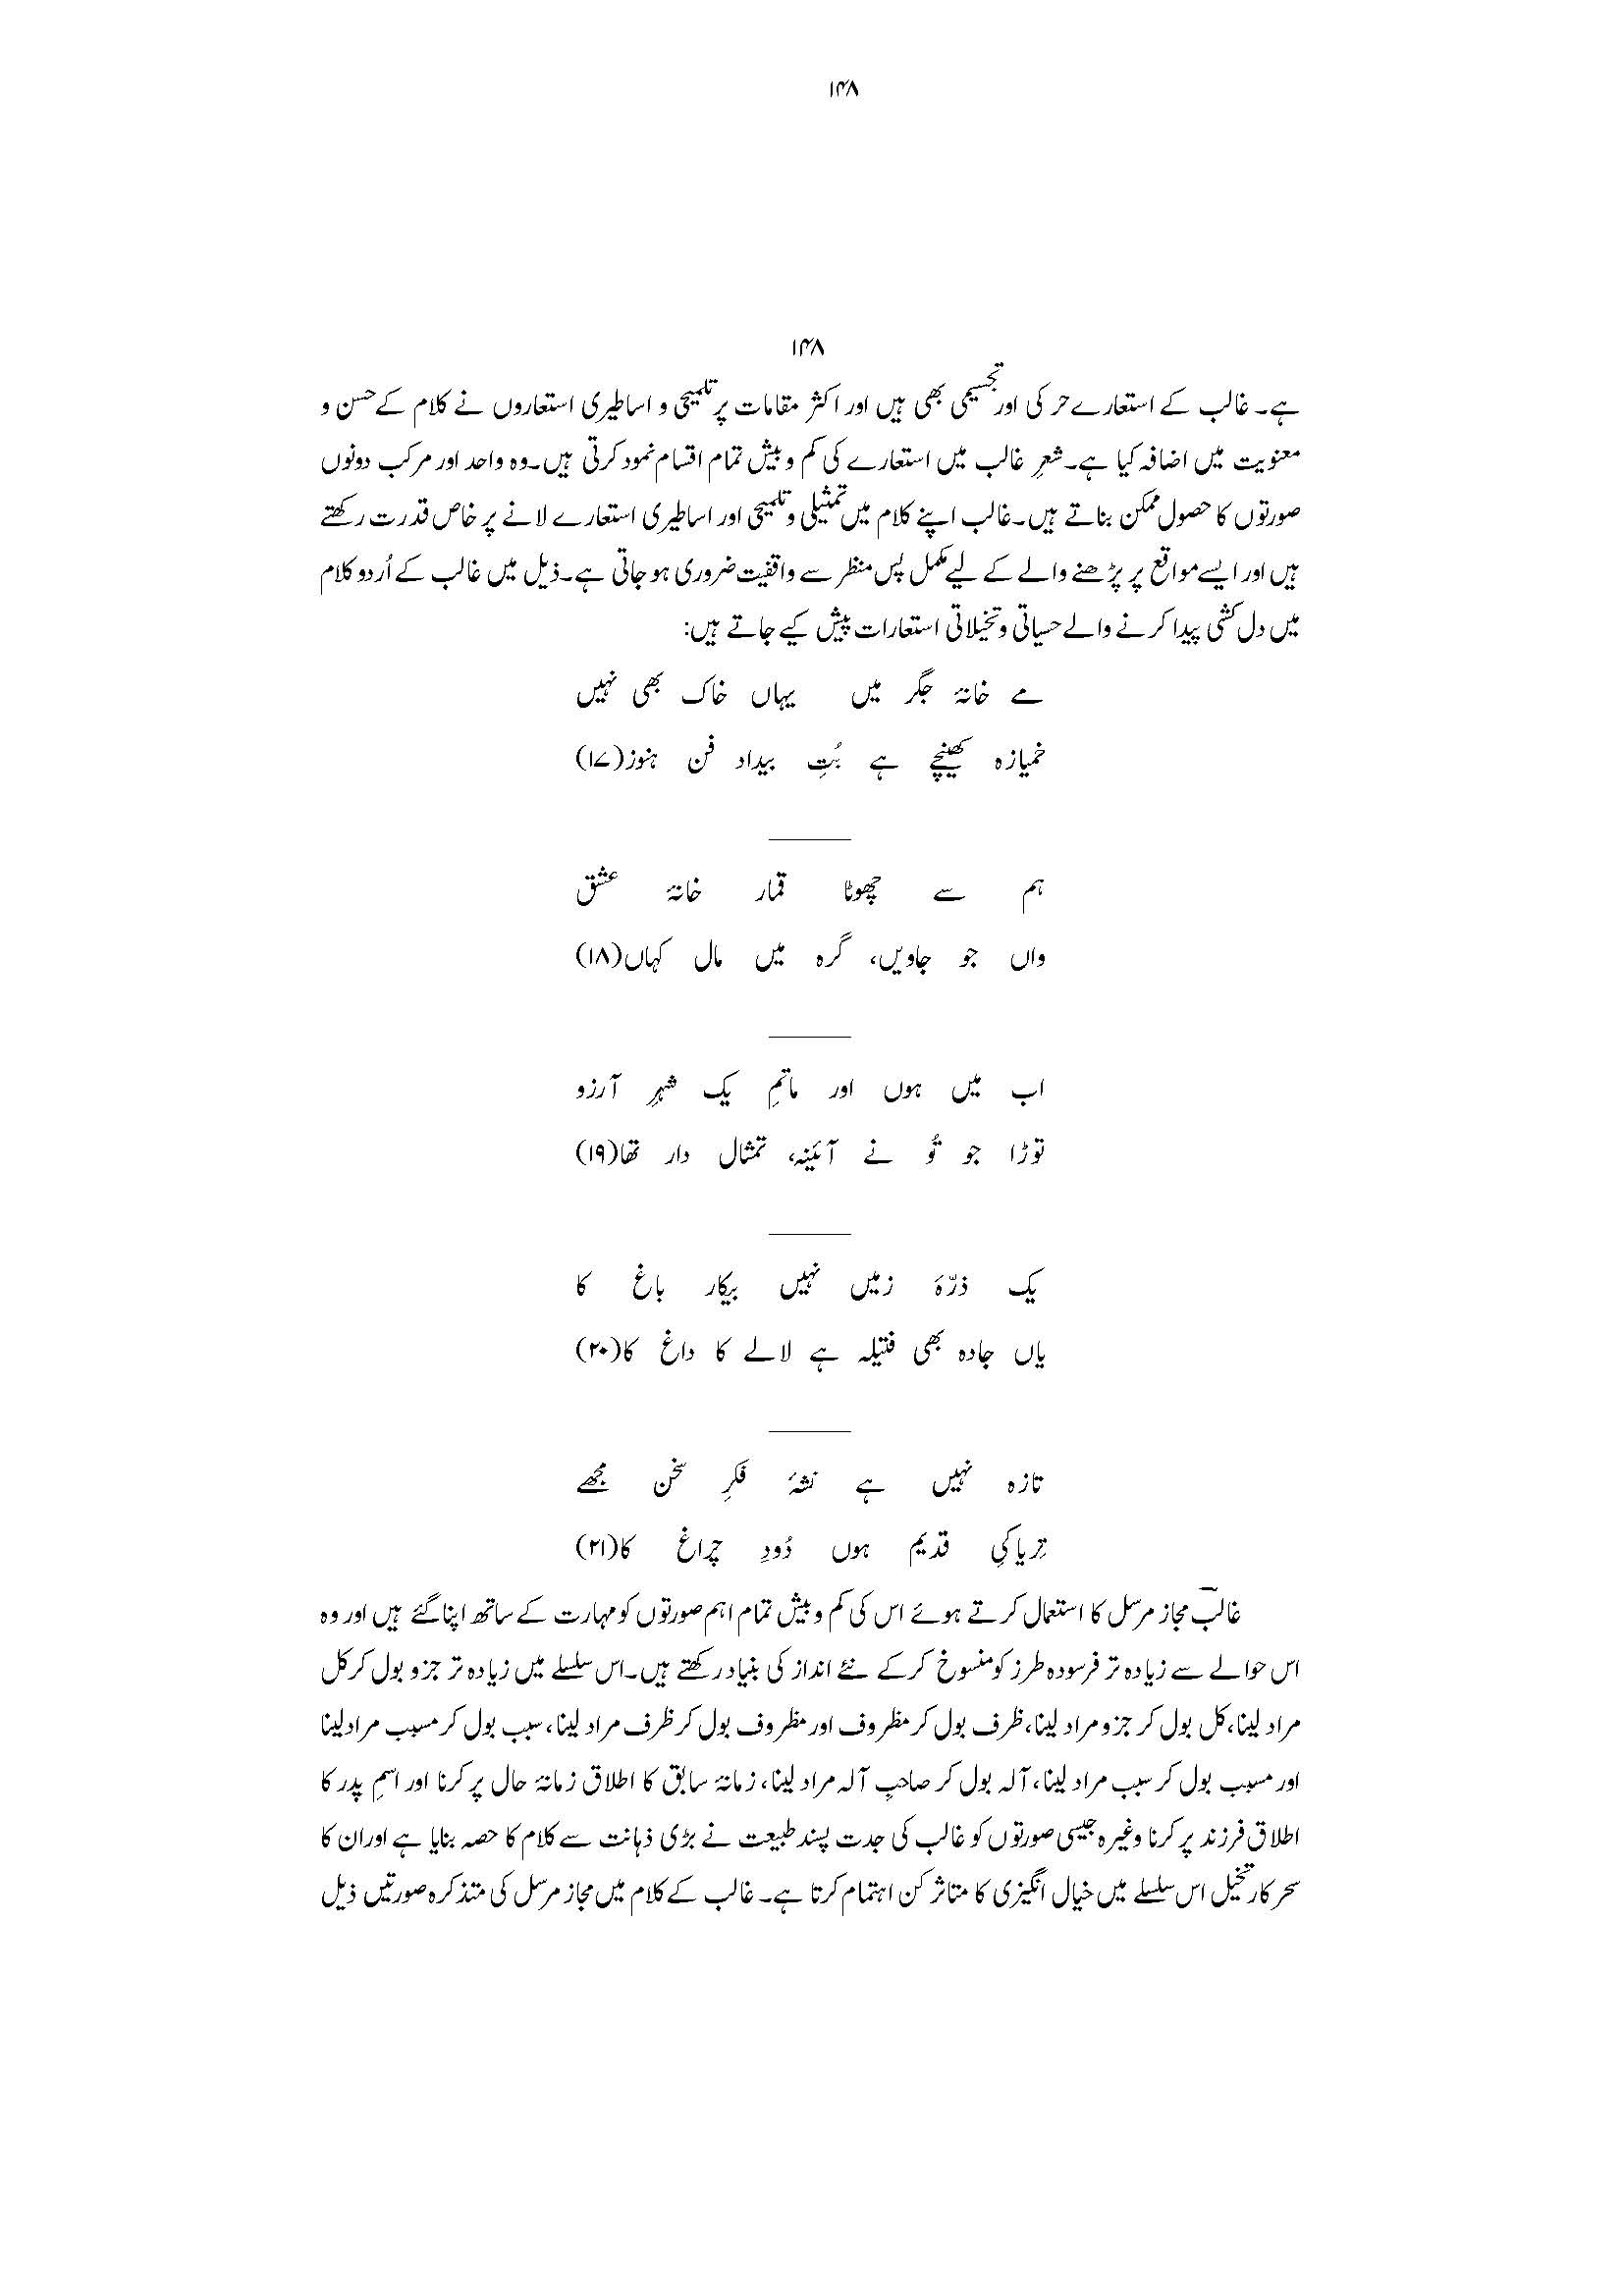 ۱۴۸
۱۴۸
ہے۔ غالب کے استعارے حرکی اور تجسیمی بھی ہیں اور اکثر مقامات پر تلمیحی و اساطیری استعاروں نے کلام کے حسن و
معنویت میں اضافہ کیا ہے۔ شعرِ غالب میں استعارے کی کم و بیش تمام اقسام نمود کرتی ہیں۔ وہ واحد اور مرکب دونوں
صورتوں کا حصول ممکن بناتے ہیں۔ غالب اپنے کلام میں تمثیلی و تلمیحی اور اساطیری استعارے لانے پر خاص قدرت رکھتے
ہیں اور ایسے مواقع پر پڑھنے والے کے لیے مکمل پس منظر سے واقفیت ضروری ہو جاتی ہے۔ ذیل میں غالب کے اُردو کلام
میں دل کشی پیدا کرنے والے حسیاتی و تخیلاتی استعارات پیش کیے جاتے ہیں:
مے خانۂ جگر میں یہاں خاک بھی نہیں
خمیازہ کھینچے ہے بُتِ بیداد فن ہنوز(۱۷)
ہم سے چھوٹا قمار خانۂ عشق
واں جو جاویں، گرہ میں مال کہاں(۱۸)
اب میں ہوں اور ماتمِ یک شہرِ آرزو
توڑا جو تُو نے آئینہ، تمثال دار تھا(۱۹)
یک ذرّۂ زمیں نہیں بیکار باغ کا
یاں جادہ بھی فتیلہ ہے لالے کا داغ کا(۲۰)
تازہ نہیں ہے نشۂ فکرِ سخن مجھے
تِریاکیِ قدیم ہوں دُودِ چراغ کا(۲۱)
غالبؔ مجاز مرسل کا استعمال کرتے ہوئے اس کی کم و بیش تمام اہم صورتوں کو مہارت کے ساتھ اپنا گئے ہیں اور وہ
اس حوالے سے زیادہ تر فرسودہ طرز کو منسوخ کر کے نئے انداز کی بنیاد رکھتے ہیں۔ اس سلسلے میں زیادہ تر جزو بول کر کل
مراد لینا، کل بول کر جزو مراد لینا، ظرف بول کر مظروف اور مظروف بول کر ظرف مراد لینا، سبب بول کر مسبب مراد لینا
اور مسبب بول کر سبب مراد لینا، آلہ بول کر صاحبِ آلہ مراد لینا، زمانۂ سابق کا اطلاق زمانۂ حال پر کرنا اور اسمِ پدر کا
اطلاق فرزند پر کرنا وغیرہ جیسی صورتوں کو غالب کی جدت پسند طبیعت نے بڑی ذہانت سے کلام کا حصہ بنایا ہے اور ان کا
سحر کار تخیل اس سلسلے میں خیال انگیزی کا متاثر کن اہتمام کرتا ہے۔ غالب کے کلام میں مجاز مرسل کی متذکرہ صورتیں ذیل